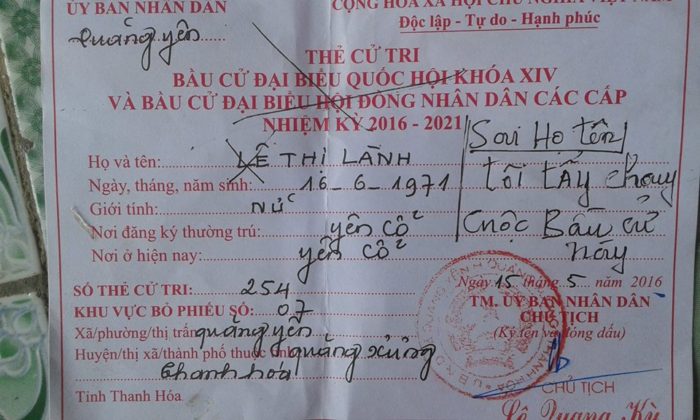 ỦY BAN NHÂN DÂN
CỘNG HÒA XÃ HỘI CHỦ NGHĨA VIỆT NAM
quảng yên
Độc lập - Tự do - Hạnh phúc
THẺ CỬ TRI
BẦU CỬ ĐẠI BIỂU QUỐC HỘI KHÓA XIV
VÀ BẦU CỬ ĐẠI BIỂU HỘI ĐỒNG NHÂN DÂN CÁC CẤP
NHIỆM KỲ 2016 - 2021
Họ và tên: LÊ THỊ LÀNH
Ngày, tháng, năm sinh: 16-6-1971
Giới tính: Nữ
Nơi đăng ký thường trú: yên cô
Nơi ở hiện nay: yên cô
Sai Họ tên
tôi tẩy chay
cuộc Bầu cử
này
SỐ THẺ CỬ TRI: 254
KHU VỰC BỎ PHIẾU SỐ: 07
Xã/phường/thị trấn quảng yên
Huyện/thị xã/thành phố thuộc tỉnh quảng xương
thanh hóa
Tỉnh Thanh Hóa
Ngày 15 tháng 5 năm 2016
TM. ỦY BAN NHÂN DÂN
CHỦ TỊCH
(Ký tên và đóng dấu)
CHỦ TỊCH
Quang